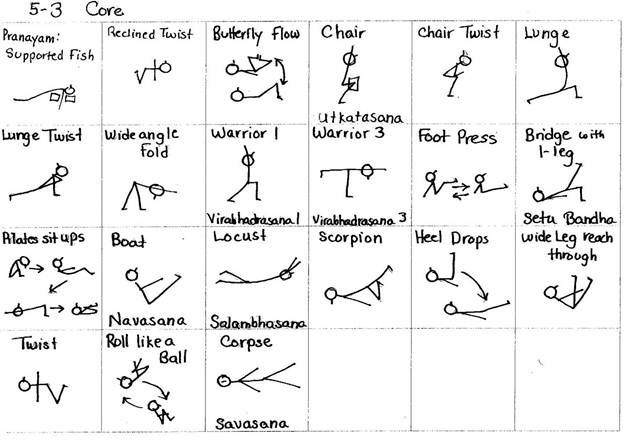 5-3 Core
Pranayam:
Supported Fish
Reclined Twist
Butterfly Flow
Chair
Utkatasana
Chair Twist
Lunge
Lunge Twist
Wide angle
Fold
Warrior 1
Virabhadrasana 1
Warrior 3
Virabhadrasana 3
Foot Press
Bridge with
1-leg
Setu Bandha
Pilates sit ups
Boat
Navasana
Locust
Salambhasana
Scorpion
Heel Drops
Wide Leg reach
through
Twist
Roll like a
Ball
Corpse
Savasana